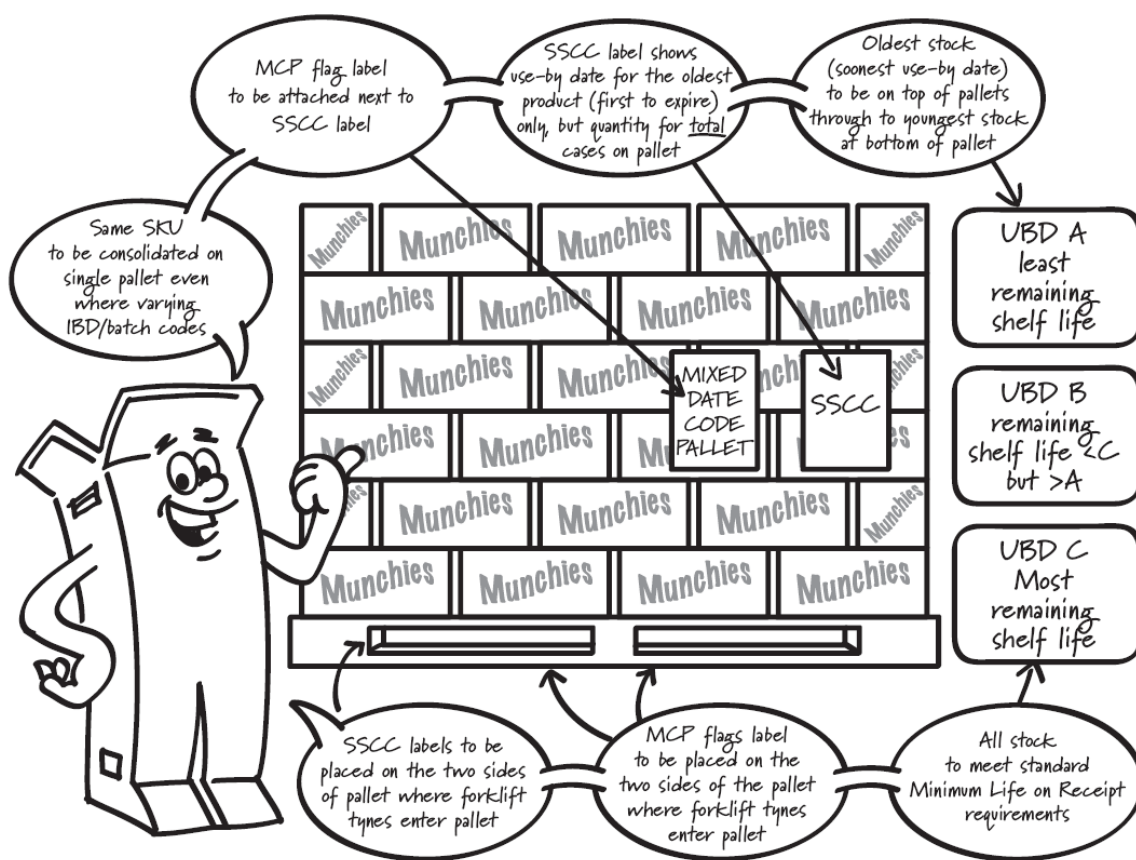 MCP flag label
to be attached next to
SSCC label
SSCC label shows
use-by date for the oldest
product (first to expire)
only, but quantity for total
cases on pallet
Oldest stock
(soonest use-by date)
to be on top of pallets
through to youngest stock
at bottom of pallet
Same SKU
to be consolidated on
single pallet even
where varying
IBD/batch codes
Munchies Munchies Munchies Munchies Munchies
Munchies Munchies Munchies Munchies
Munchies Munchies Munchies
Munchies Munchies
Munchies Munchies Munchies Munchies
Munchies Munchies Munchies Munchies
MIXED
DATE
CODE
PALLET
SSCC
UBD A
least
remaining
shelf life
UBD B
remaining
shelf life <C
but >A
UBD C
Most
remaining
shelf life
SSCC labels to be
placed on the two sides
of pallet where forklift
tynes enter pallet
MCP flags label
to be placed on the
two sides of the pallet
where forklift tynes
enter pallet
All stock
to meet standard
Minimum Life on Receipt
requirements